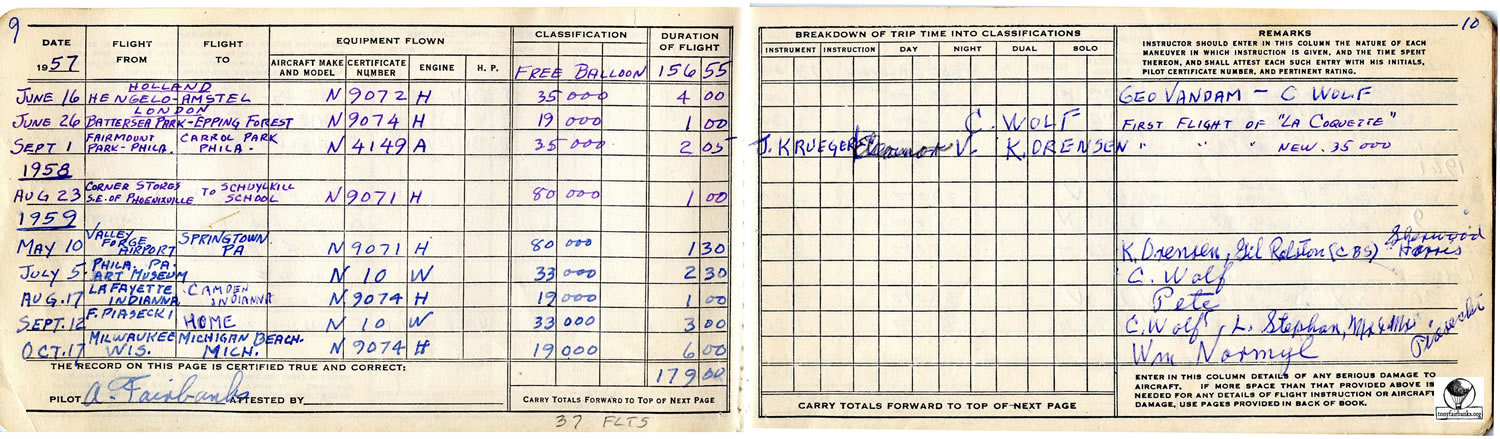 9
DATE
1957
FLIGHT FROM
FLIGHT TO
EQUIPMENT FLOWN
AIRCRAFT MAKE AND MODEL
CERTIFICATE NUMBER
ENGINE
H. P.
CLASSIFICATION
FREE BALLOON
DURATION OF FLIGHT
156 55
HOLLAND
JUNE 16 HENGELO-AMSTEL N 9072 H 35 000 4 00
LONDON
JUNE 26 BATTERSEA PARK-EPPING FOREST N 9074 H 19 000 1 00
SEPT 1 FAIRMOUNT PARK-PHILA. CARROL PARK PHILA. N 4149 A 35 000 2 05
1958
AUG 23 CORNER STORES S.E. OF PHOENIXVILLE TO SCHUYLKILL SCHOOL N 9071 H 80 000 1 00
1959
MAY 10 VALLEY FORGE AIRPORT SPRINGTOWN PA N 9071 H 80 000 1 30
JULY 5 PHILA. PA. ART MUSEUM N 10 W 33 000 2 30
AUG. 17 LAFAYETTE INDIANNA CAMDEN INDIANNA N 9074 H 19 000 1 00
SEPT. 12 F. PIASECKI HOME N 10 W 33 000 3 00
OCT. 17 MILWAUKEE WIS. MICHIGAN BEACH. MICH. N 9074 H 19 000 6 00
THE RECORD ON THIS PAGE IS CERTIFIED TRUE AND CORRECT:
179 00
PILOT A. Fairbanks ATTESTED BY
CARRY TOTALS FORWARD TO TOP OF NEXT PAGE
37 FLTS
10
BREAKDOWN OF TRIP TIME INTO CLASSIFICATIONS
INSTRUMENT INSTRUCTION DAY NIGHT DUAL SOLO
REMARKS
INSTRUCTOR SHOULD ENTER IN THIS COLUMN THE NATURE OF EACH
MANEUVER IN WHICH INSTRUCTION IS GIVEN, AND THE TIME SPENT
THEREON, AND SHALL ATTEST EACH SUCH ENTRY WITH HIS INITIALS,
PILOT CERTIFICATE NUMBER, AND PERTINENT RATING.
GEO VANDAM - C WOLF
C. WOLF FIRST FLIGHT OF "LA COQUETTE"
J. KRUEGER Eleanor V. K. DRENSEN " " " NEW. 35 000
K. Drensen, Gil Ralston (CBS) Sherwood Harris
C. Wolf
Pete
C. Wolf, L. Stephan, Mr & Mrs.
Wm Normyl
ENTER IN THIS COLUMN DETAILS OF ANY SERIOUS DAMAGE TO
AIRCRAFT. IF MORE SPACE THAN THAT PROVIDED ABOVE IS
NEEDED FOR ANY DETAILS OF FLIGHT INSTRUCTION OR AIRCRAFT
DAMAGE, USE PAGES PROVIDED IN BACK OF BOOK.
CARRY TOTALS FORWARD TO TOP OF NEXT PAGE
tonyfairbanks.org